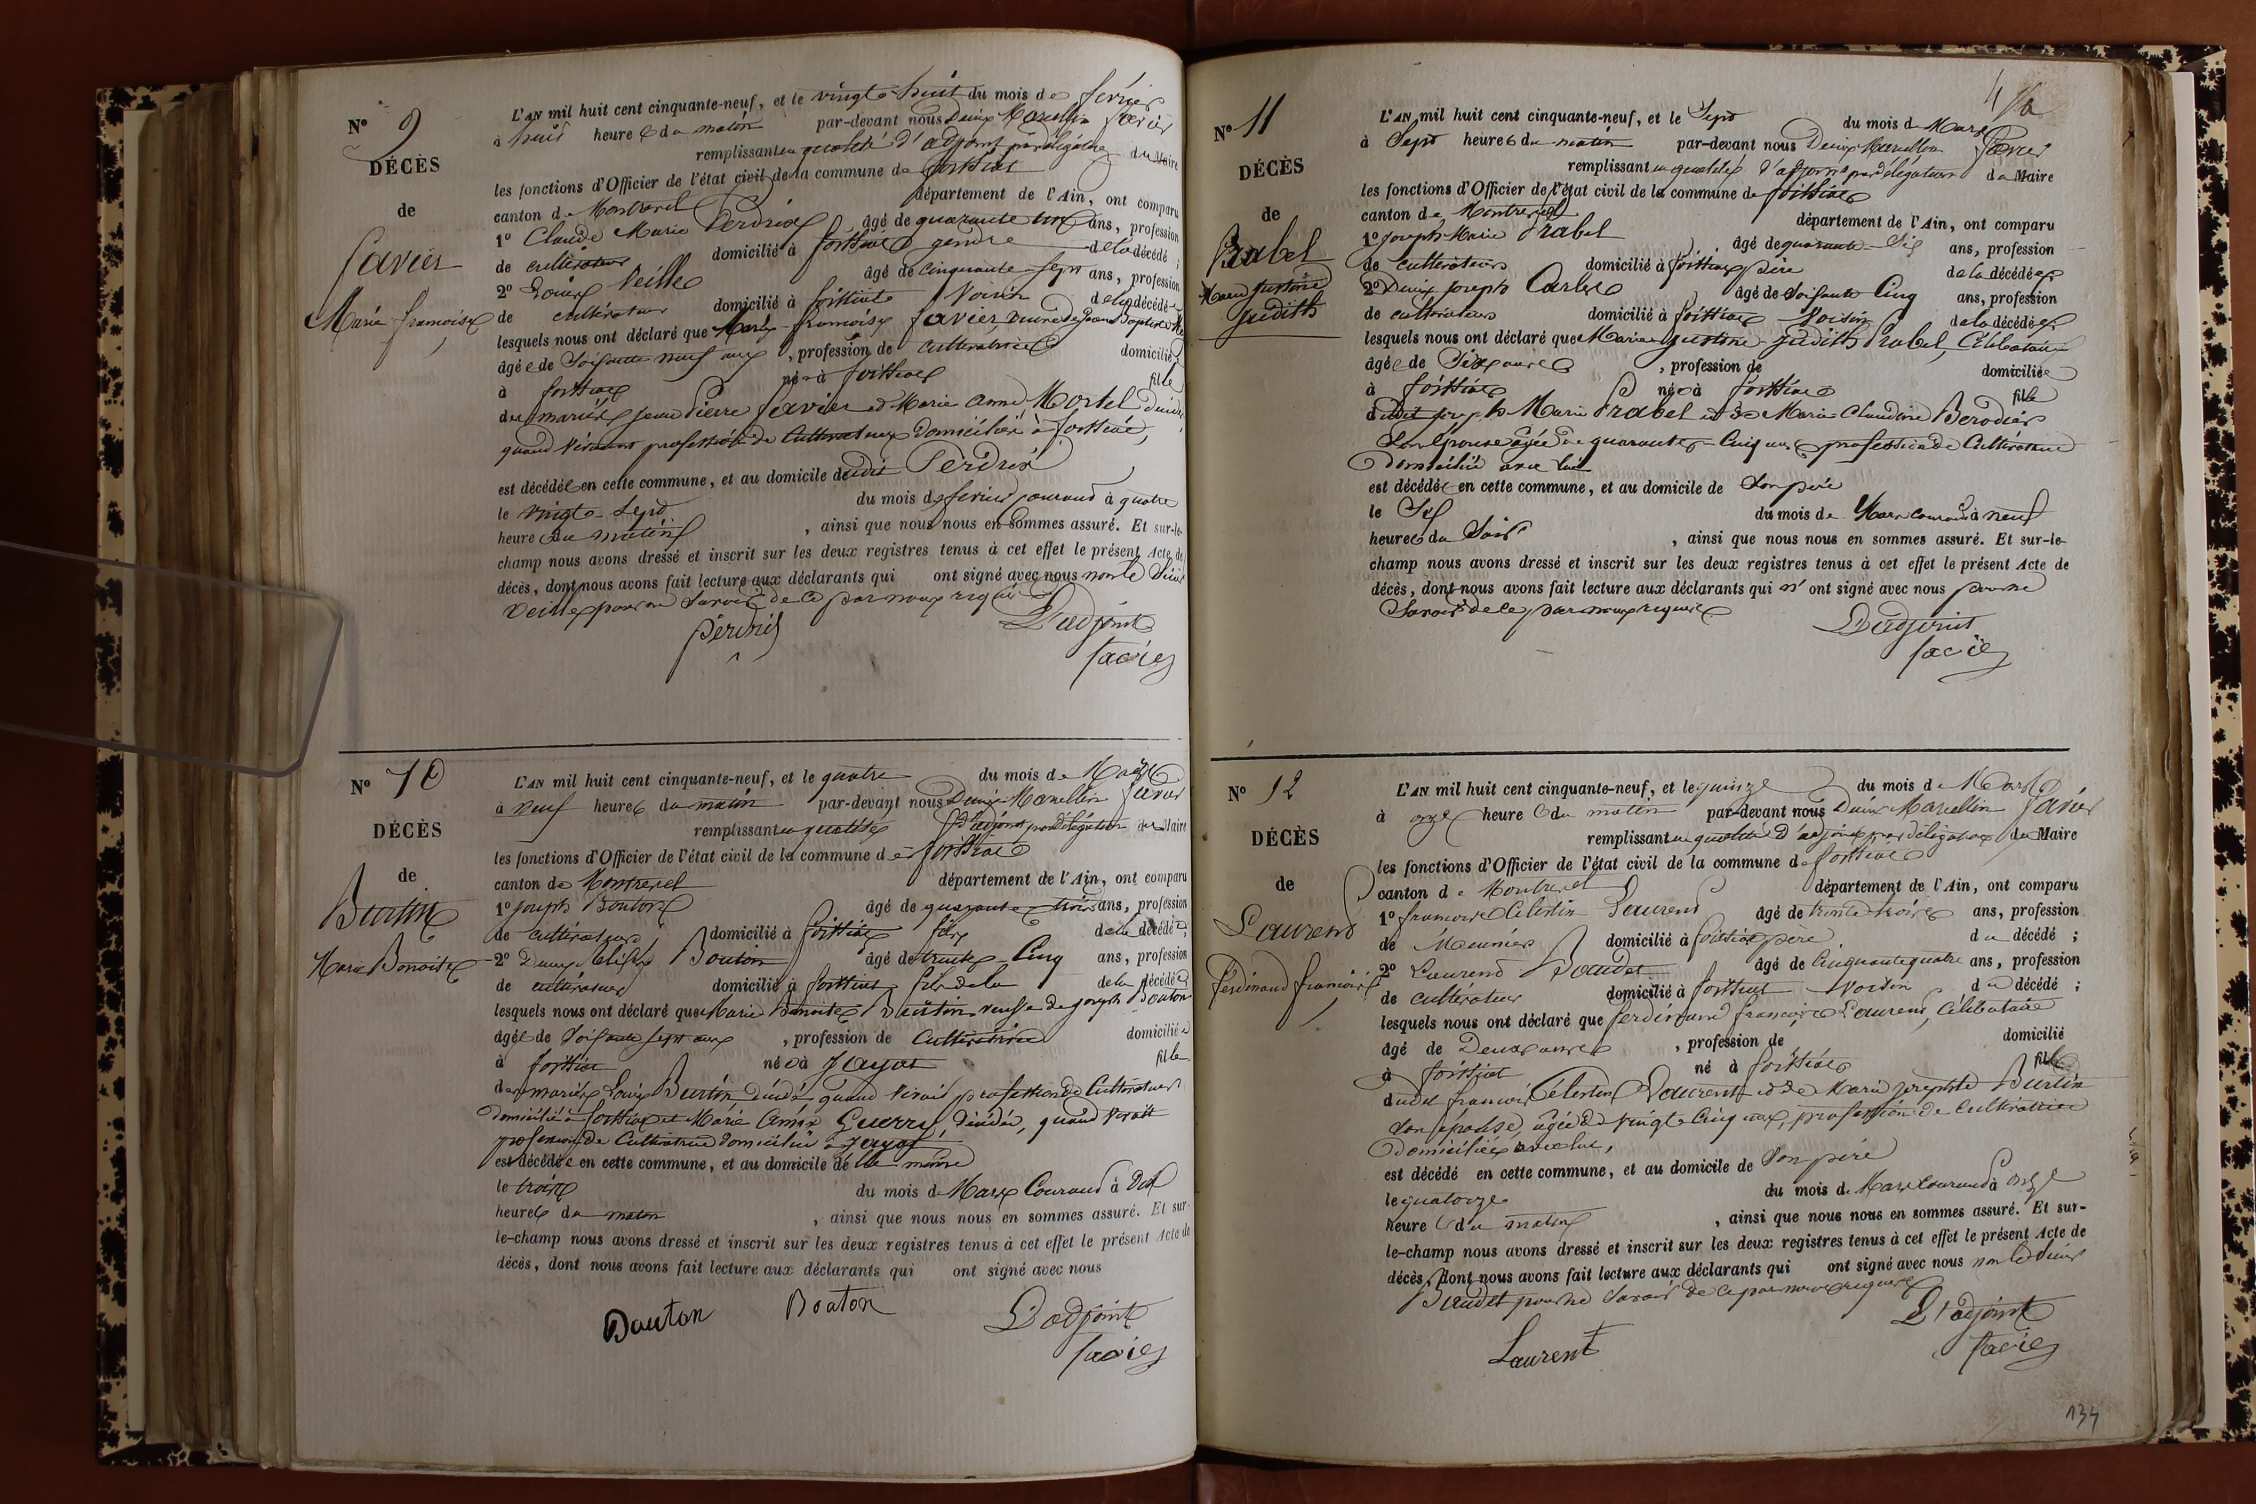 N° 9
DÉCÈS
de
Favier
Marie françoise
L'AN mil huit cent cinquante-neuf, et le vingt-huit du mois de février
à huit heures du matin par-devant nous Denis Marcellin favier
remplissant en qualité d'adjoint par délégation du Maire
les fonctions d'Officier de l'état civil de la commune de foissiat
canton de Montrevel département de l'Ain, ont comparu
1° Claude Marie Perdrix âgé de quarante ans, profession
de cultivateur domicilié à foissiat gendre de la décédé ;
2° Louis Veille âgé de cinquante sept ans, profession
de cultivateur domicilié à foissiat Voisin de la décédé
lesquels nous ont déclaré que Marie françoise favier, veuve de Jean Baptiste
âgée de Soixante neuf ans, profession de cultivatrice domiciliée
à foissiat née à foissiat fille
des mariés Jean Pierre favier et Marie Anne Mortel
quand vivaient profession de Cultivateurs domiciliés à foissiat,
est décédée en cette commune, et au domicile dudit Perdrix
le vingt-sept du mois de février courant à quatre
heures du matin, ainsi que nous nous en sommes assuré. Et sur-le-
champ nous avons dressé et inscrit sur les deux registres tenus à cet effet le présent Acte de
décès, dont nous avons fait lecture aux déclarants qui ont signé avec nous non le Sieur
Veille pour ne Savoir de ce par nous requis
Perdrix
L'adjoint
favier
N° 10
DÉCÈS
de
Burtin
Marie Benoite
L'AN mil huit cent cinquante-neuf, et le quatre du mois de Mars
à neuf heures du matin par-devant nous Denis Marcellin favier
remplissant en qualité d'adjoint par délégation du Maire
les fonctions d'Officier de l'état civil de la commune de foissiat
canton de Montrevel département de l'Ain, ont comparu
1° Joseph Bouton âgé de quarante trois ans, profession
de cultivateur domicilié à foissiat fils de la décédée ;
2° Denis Bouton âgé de trente-Cinq ans, profession
de cultivateur domicilié à foissiat fils de la de la décédée
lesquels nous ont déclaré que Marie Benoite Burtin veuve de Joseph Bouton
âgée de Soixante sept ans, profession de Cultivatrice domiciliée
à foissiat née à Jayat fille
des mariés Louis Burtin, décédé quand vivait profession de Cultivateur
domicilié à foissiat et Marie Guerry, décédée, quand vivait
profession de Cultivatrice domiciliée à Jayat,
est décédée en cette commune, et au domicile de elle même
le trois du mois de Mars Courant à
heures du matin, ainsi que nous nous en sommes assuré. Et sur-
le-champ nous avons dressé et inscrit sur les deux registres tenus à cet effet le présent Acte de
décès, dont nous avons fait lecture aux déclarants qui ont signé avec nous
Bouton Bouton
L'adjoint
favier
N° 11
DÉCÈS
de
Prabel
Marie Justine
Judith
L'AN mil huit cent cinquante-neuf, et le Sept du mois de Mars
à Sept heures du matin par-devant nous Denis Marcellin favier
remplissant en qualité d'adjoint par délégation du Maire
les fonctions d'Officier de l'état civil de la commune de foissiat
canton de Montrevel département de l'Ain, ont comparu
1° Joseph Marie Prabel âgé de quarante-Six ans, profession
de cultivateur domicilié à foissiat père de la décédée
2° Denis Joseph âgé de Soixante Cinq ans, profession
de cultivateur domicilié à foissiat Voisin de la décédée
lesquels nous ont déclaré que Marie Justine Judith Prabel, Célibataire
âgée de, profession de domiciliée
à foissiat née à foissiat fille
dudit Joseph Marie Prabel et de Marie Claudine Berodier
Son épouse âgée de quarante-Cinq ans profession de Cultivatrice
domiciliée avec lui
est décédée en cette commune, et au domicile de Son père
le Six du mois de Mars courant à neuf
heures du Soir, ainsi que nous nous en sommes assuré. Et sur-le-
champ nous avons dressé et inscrit sur les deux registres tenus à cet effet le présent Acte de
décès, dont nous avons fait lecture aux déclarants qui n'ont signé avec nous pour ne
Savoir de ce par nous requis
L'adjoint
favier
N° 12
DÉCÈS
de
Laurent
Ferdinand françois
L'AN mil huit cent cinquante-neuf, et le quinze du mois de Mars
à onze heures du matin par-devant nous Denis Marcellin favier
remplissant en qualité d'adjoint par délégation du Maire
les fonctions d'Officier de l'état civil de la commune de foissiat
canton de Montrevel département de l'Ain, ont comparu
1° françois Célestin Laurent âgé de trente trois ans, profession
de Meunier domicilié à foissiat père du décédé ;
2° Laurent Boudet âgé de Cinquante quatre ans, profession
de cultivateur domicilié à foissiat Voisin du décédé ;
lesquels nous ont déclaré que ferdinand françois Laurent, Célibataire
âgé de Deux ans, profession de domicilié
à foissiat né à foissiat fils
dudit françois Célestin Laurent et de Marie Josephte Burtin
Son épouse, âgée de vingt Cinq ans, profession de Cultivatrice
domiciliée avec lui,
est décédé en cette commune, et au domicile de Son père
le quatorze du mois de Mars Courant à onze
heures du matin, ainsi que nous nous en sommes assuré. Et sur-
le-champ nous avons dressé et inscrit sur les deux registres tenus à cet effet le présent Acte de
décès, dont nous avons fait lecture aux déclarants qui ont signé avec nous non le Sieur
Boudet pour ne Savoir de ce par nous requis
Laurent
L'adjoint
favier
134